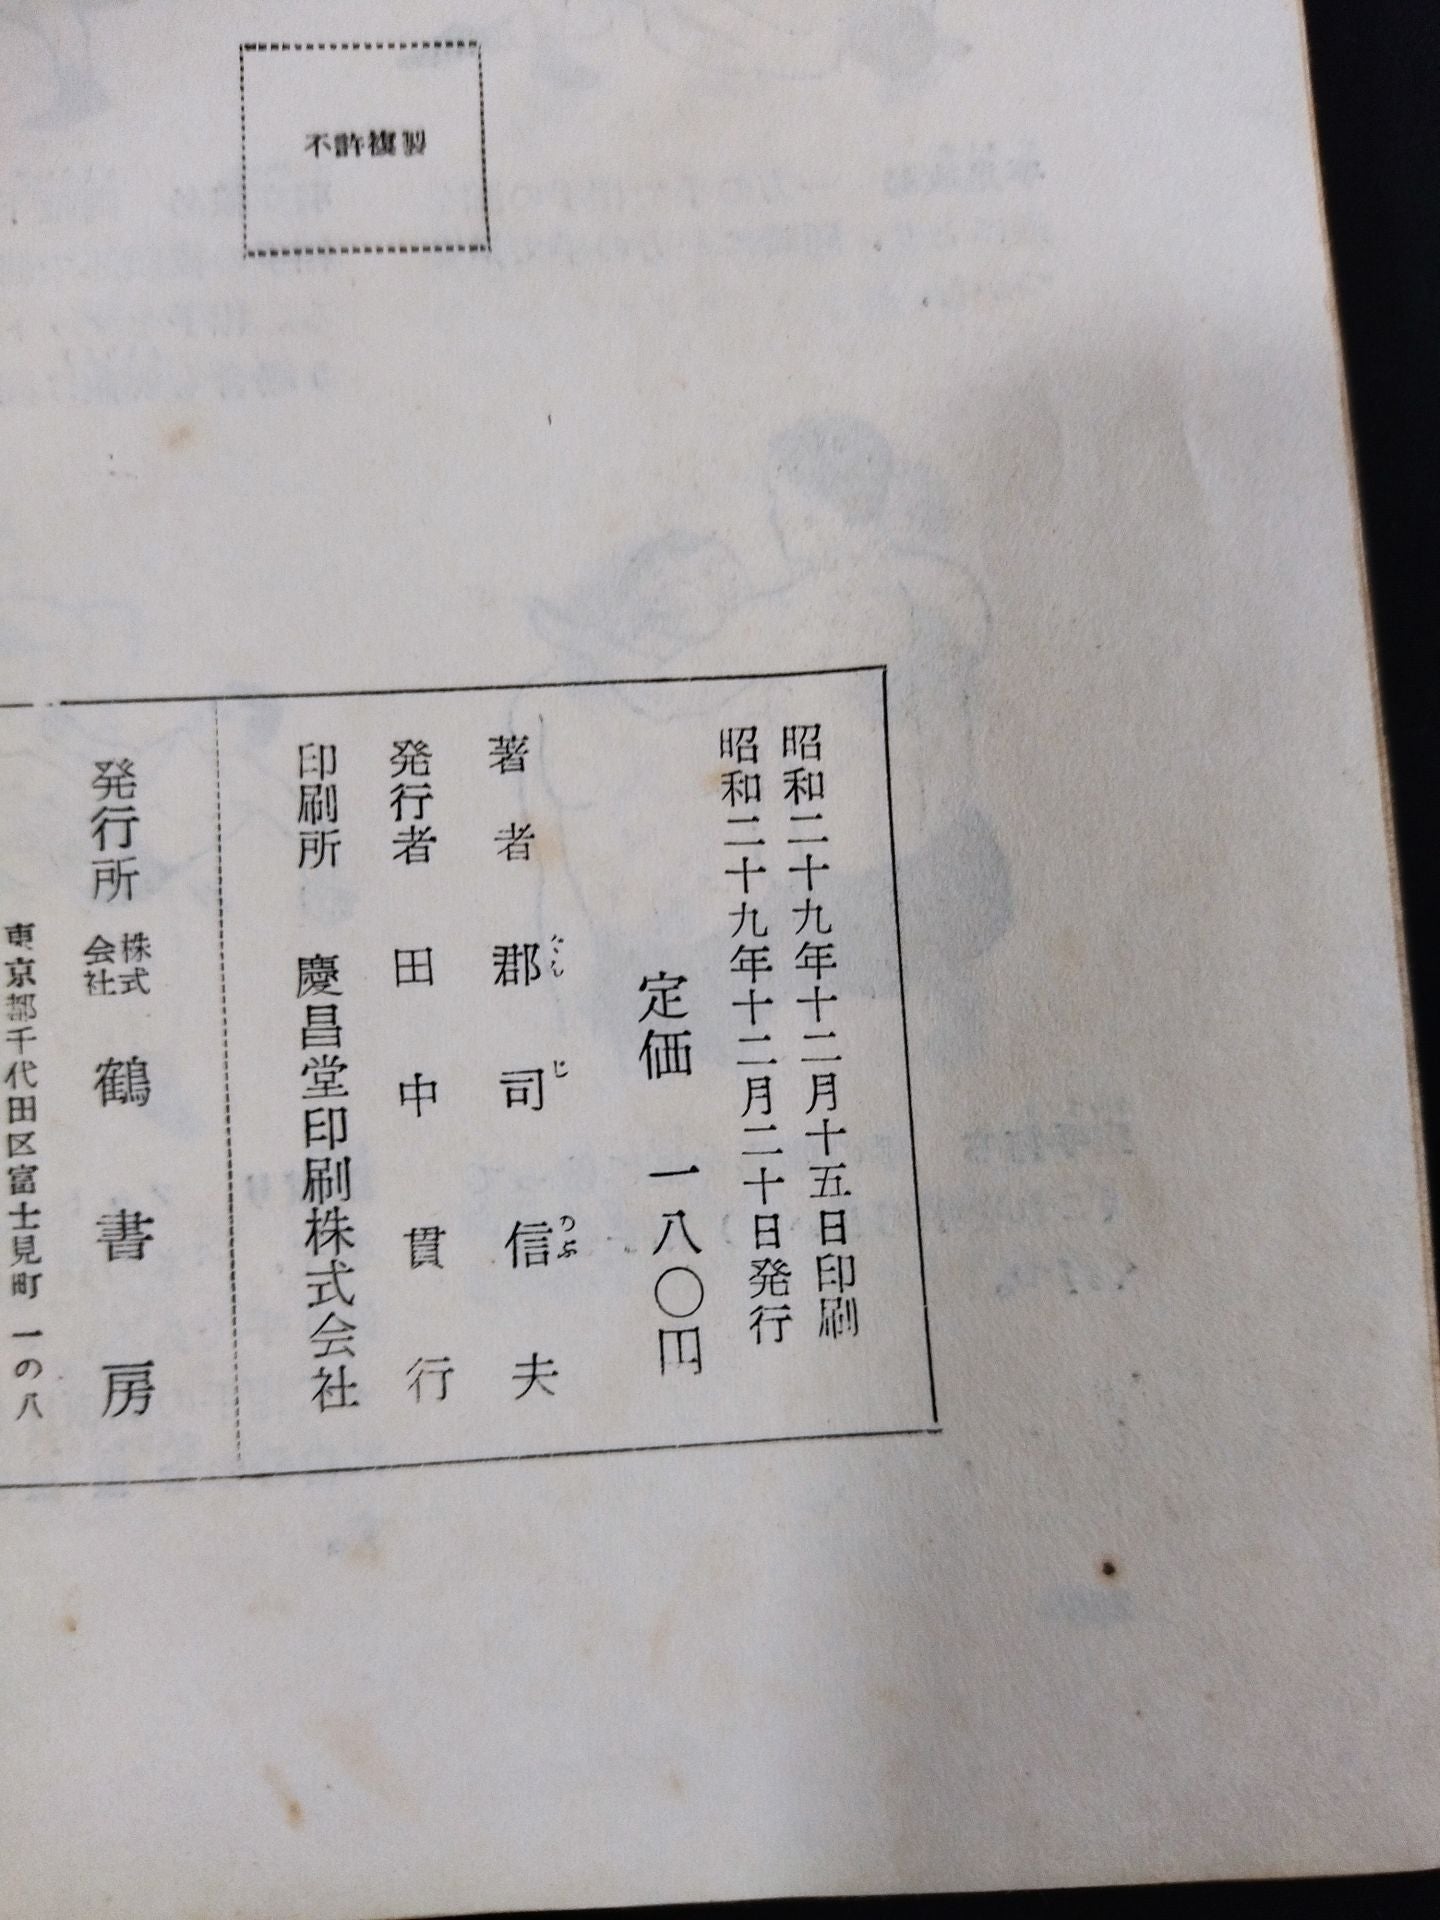 不許複製
昭和二十九年十二月十五日印刷
昭和二十九年十二月二十日発行
定価 一八〇円
著者 郡司信夫
ぐんじのぶ
発行者 田中貫行
印刷所 慶昌堂印刷株式会社
発行所 株式会社 鶴書房
東京都千代田区富士見町一の八